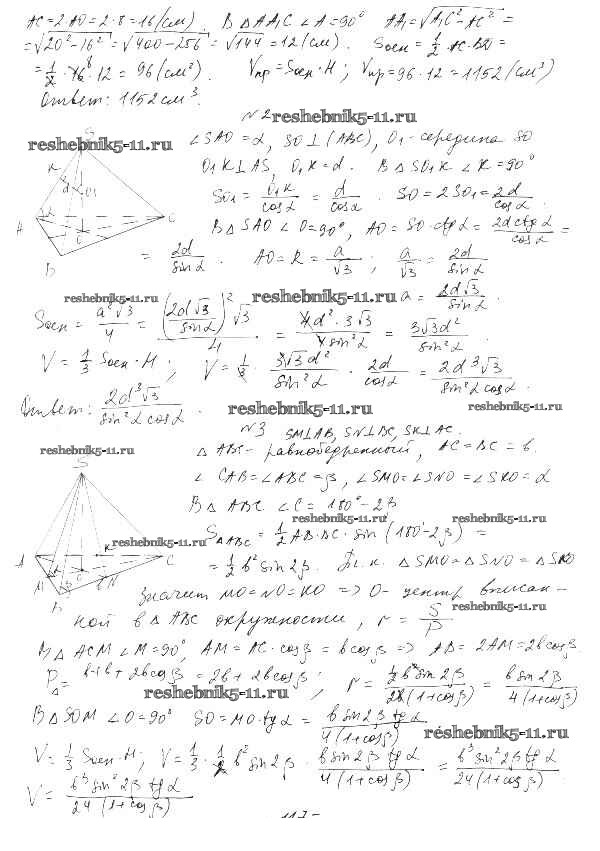 AC = 2AO = 2·8 = 16 (см). В △ AA₁C ∠A = 90° AA₁ = √(A₁C² − AC²) =
= √(20² − 16²) = √(400 − 256) = √144 = 12 (см). Sосн = 1/2 · AC · BD =
= 1/2 · 16 · 12 = 96 (см²). Vпр = Sосн · H; Vпр = 96 · 12 = 1152 (см³)
Ответ: 1152 см³.
№2
reshebnik5-11.ru
reshebnik5-11.ru
∠SAO = α, SO ⊥ (ABC), O₁ - середина SO
O₁K ⊥ AS, O₁K = d. В △ SO₁K ∠K = 90°
SO₁ = O₁K/cosα = d/cosα. SO = 2SO₁ = 2d/cosα
В △ SAO ∠O = 90°, AO = SO · ctgα = 2d ctgα/cosα =
= 2d/sinα. AO = R = a/√3; a/√3 = 2d/sinα
reshebnik5-11.ru
reshebnik5-11.ru
a = 2d√3/sinα.
Sосн = a²√3/4 = (2d√3/sinα)²√3/4 = 4d²·3√3/4sin²α = 3√3d²/sin²α
V = 1/3 Sосн · H; V = 1/3 · 3√3d²/sin²α · 2d/cosα = 2d³√3/sin²α cosα
Ответ: 2d³√3/sin²α cosα.
reshebnik5-11.ru
reshebnik5-11.ru
№3 SM⊥AB, SN⊥BC, SK⊥AC.
reshebnik5-11.ru
△ ABC - равнобедренный, AC = BC = b.
∠ CAB = ∠ABC = β, ∠SMO = ∠SNO = ∠SKO = α
В △ ABC ∠C = 180° − 2β
reshebnik5-11.ru
reshebnik5-11.ru
reshebnik5-11.ru
S△ABC = 1/2 AB·BC · sin(180° − 2β) =
= 1/2 b² sin2β. Т.к. △ SMO = △ SNO = △ SKO
Значит MO = NO = KO => O - центр вписан-
ной в △ ABC окружности, r = S/P
reshebnik5-11.ru
В △ ACM ∠M = 90°, AM = AC · cosβ = b cosβ => AB = 2AM = 2b cosβ
P△ = b + b + 2b cosβ = 2b + 2b cosβ; r = 1/2 b² sin2β/2b(1+cosβ) = b sin2β/4(1+cosβ)
reshebnik5-11.ru
В △ SOM ∠O = 90° SO = MO · tgα = b sin2β tgα/4(1+cosβ)
reshebnik5-11.ru
V = 1/3 Sосн · H; V = 1/3 · 1/2 b² sin2β · b sin2β tgα/4(1+cosβ) = b³ sin²2β tgα/24(1+cosβ)
V = b³ sin²2β tgα/24(1+cosβ)